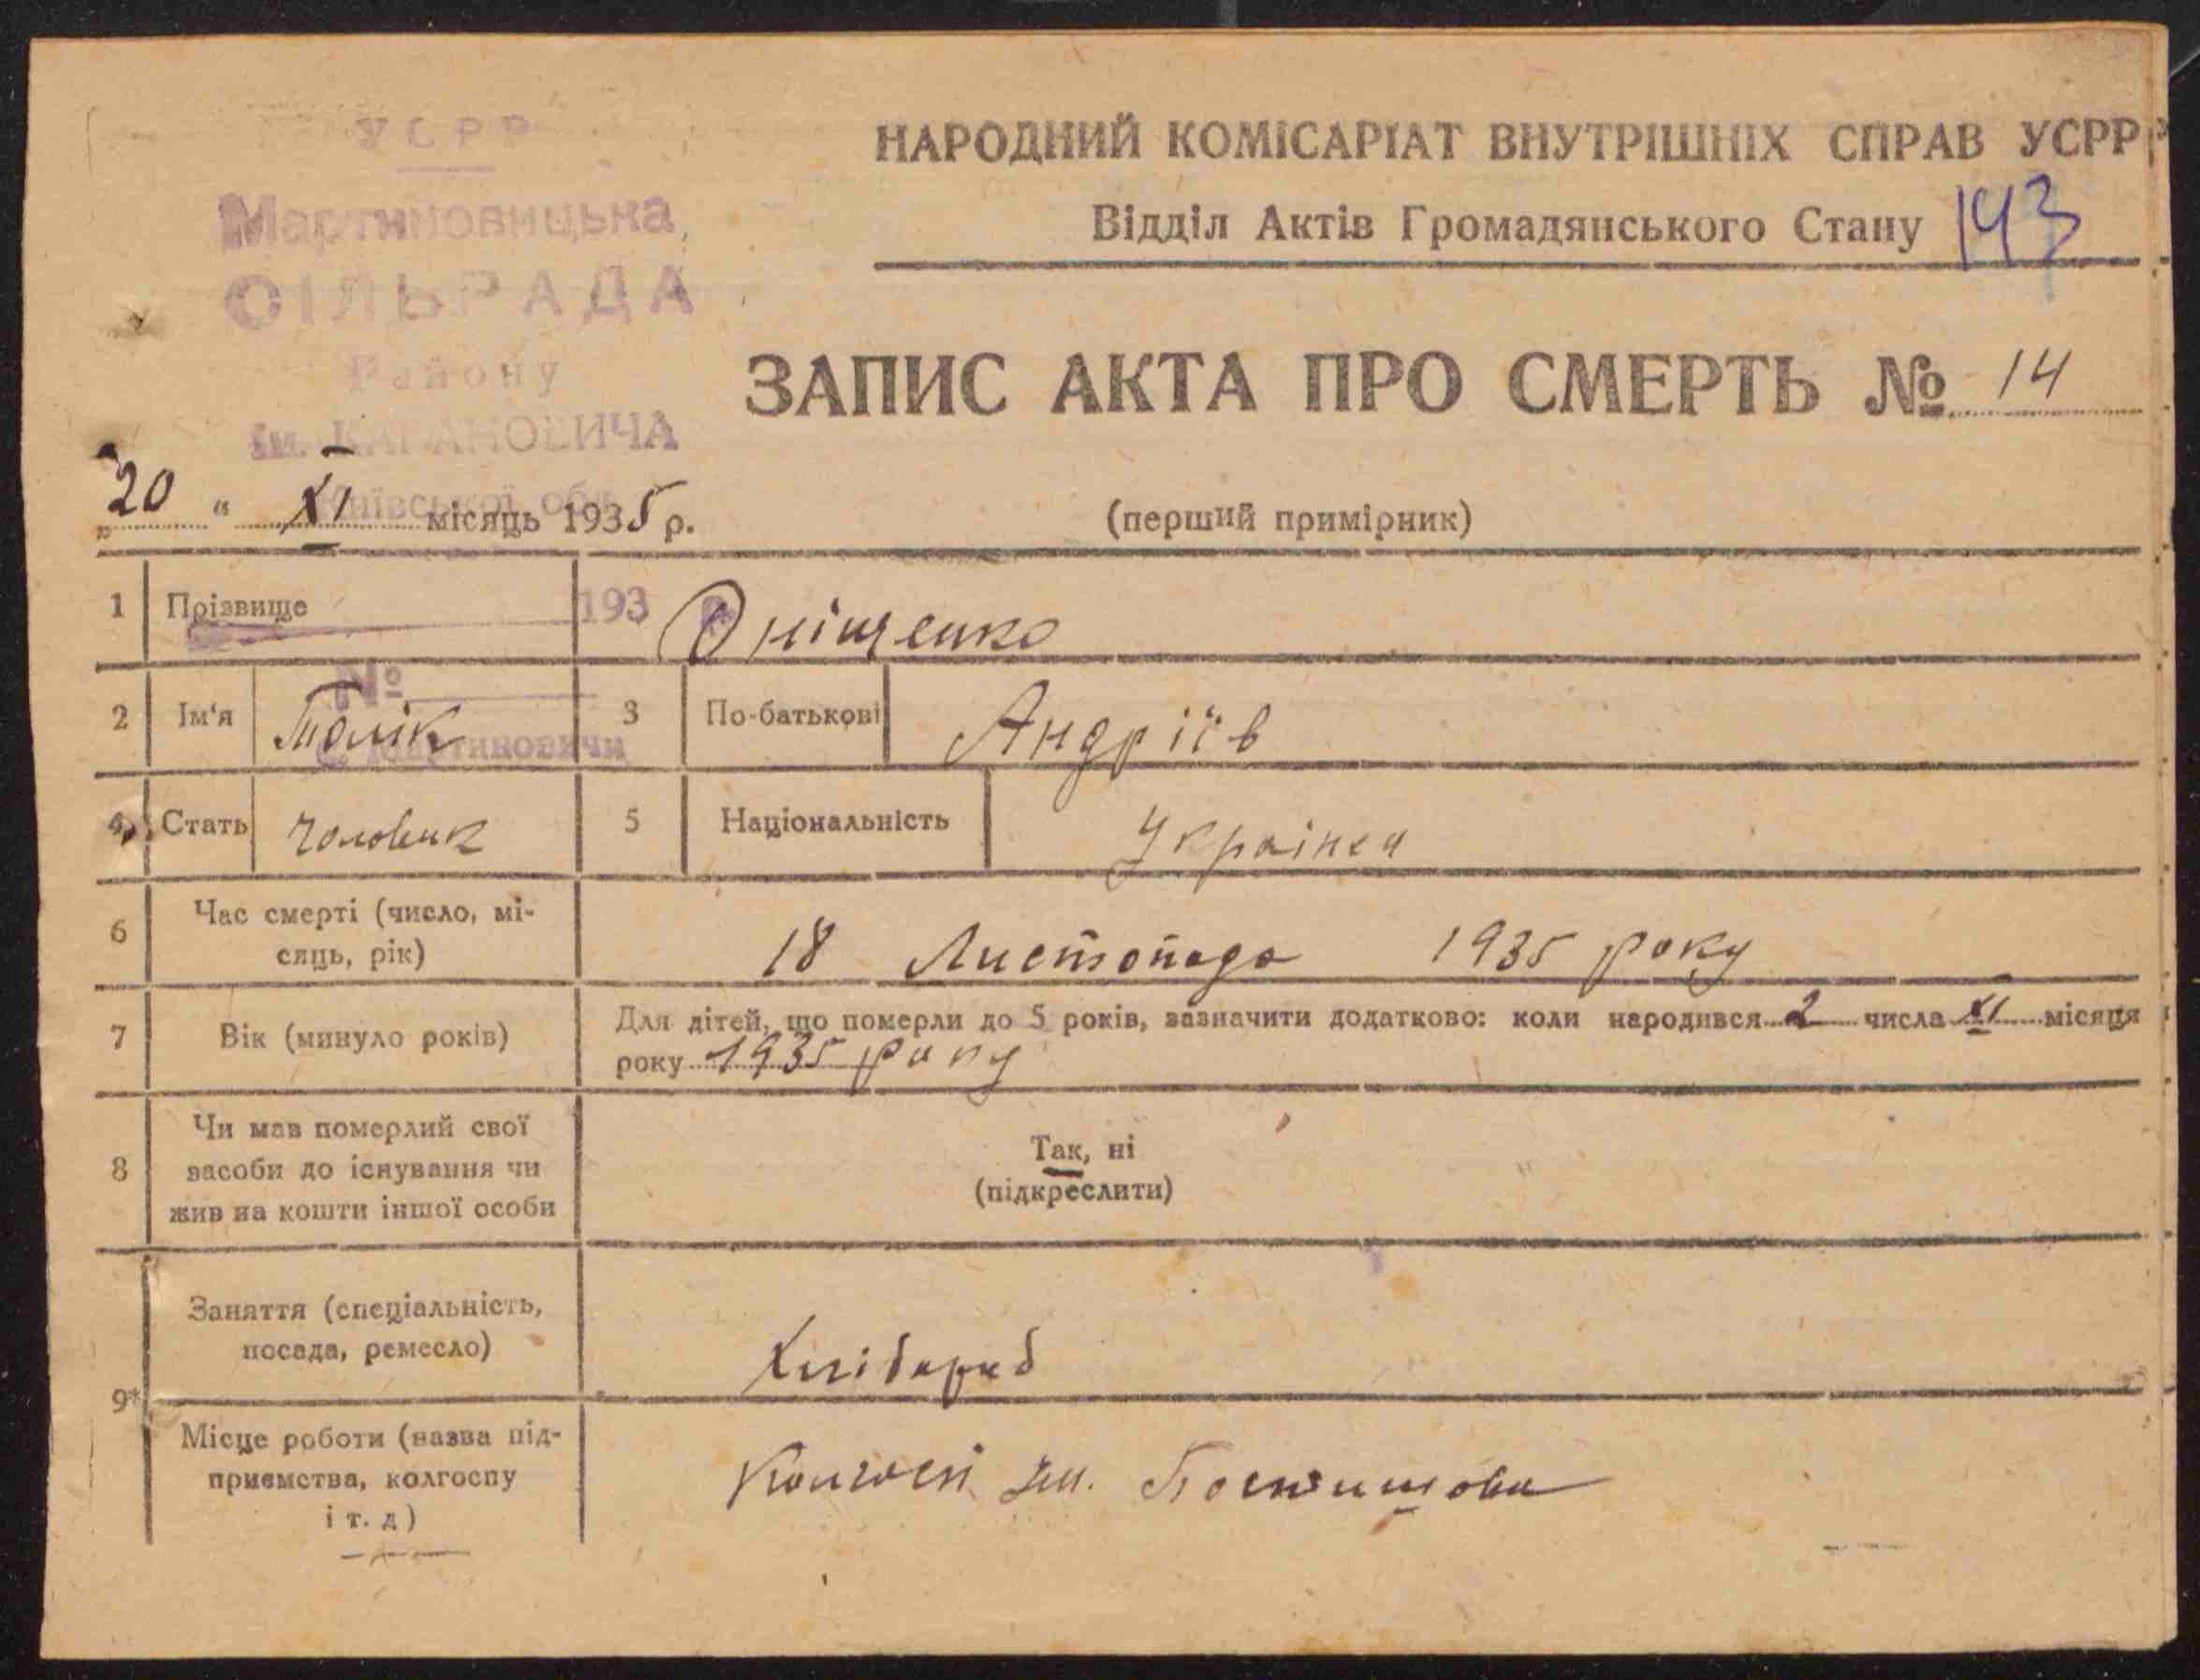 УСРР
Мартиновицька
СІЛЬРАДА
Району
ім. КАГАНОВИЧА
Київської обл.
НАРОДНИЙ КОМІСАРІАТ ВНУТРІШНІХ СПРАВ УСРР
Відділ Актів Громадянського Стану 143
ЗАПИС АКТА ПРО СМЕРТЬ № 14
„20“ XI місяць 1935 р.
(перший примірник)
1 Прізвище 193 р. Оніщенко
№
2 Ім‘я Толік 3 По-батькові Андріїв
с. Мартиновичи
4 Стать Чоловик 5 Національність Українец
6 Час смерті (число, мі-
сяць, рік)
18 Листопада 1935 року
7 Вік (минуло років) Для дітей, що померли до 5 років, зазначити додатково: коли народився 2 числа XI місяця
року 1935 року
8 Чи мав померлий свої
засоби до існування чи
жив на кошти іншої особи
Так, ні
(підкреслити)
9*
Заняття (спеціальність,
посада, ремесло)
Хлібороб
Місце роботи (назва під-
приємства, колгоспу
і т. д)
Колгосп ім. Постишова